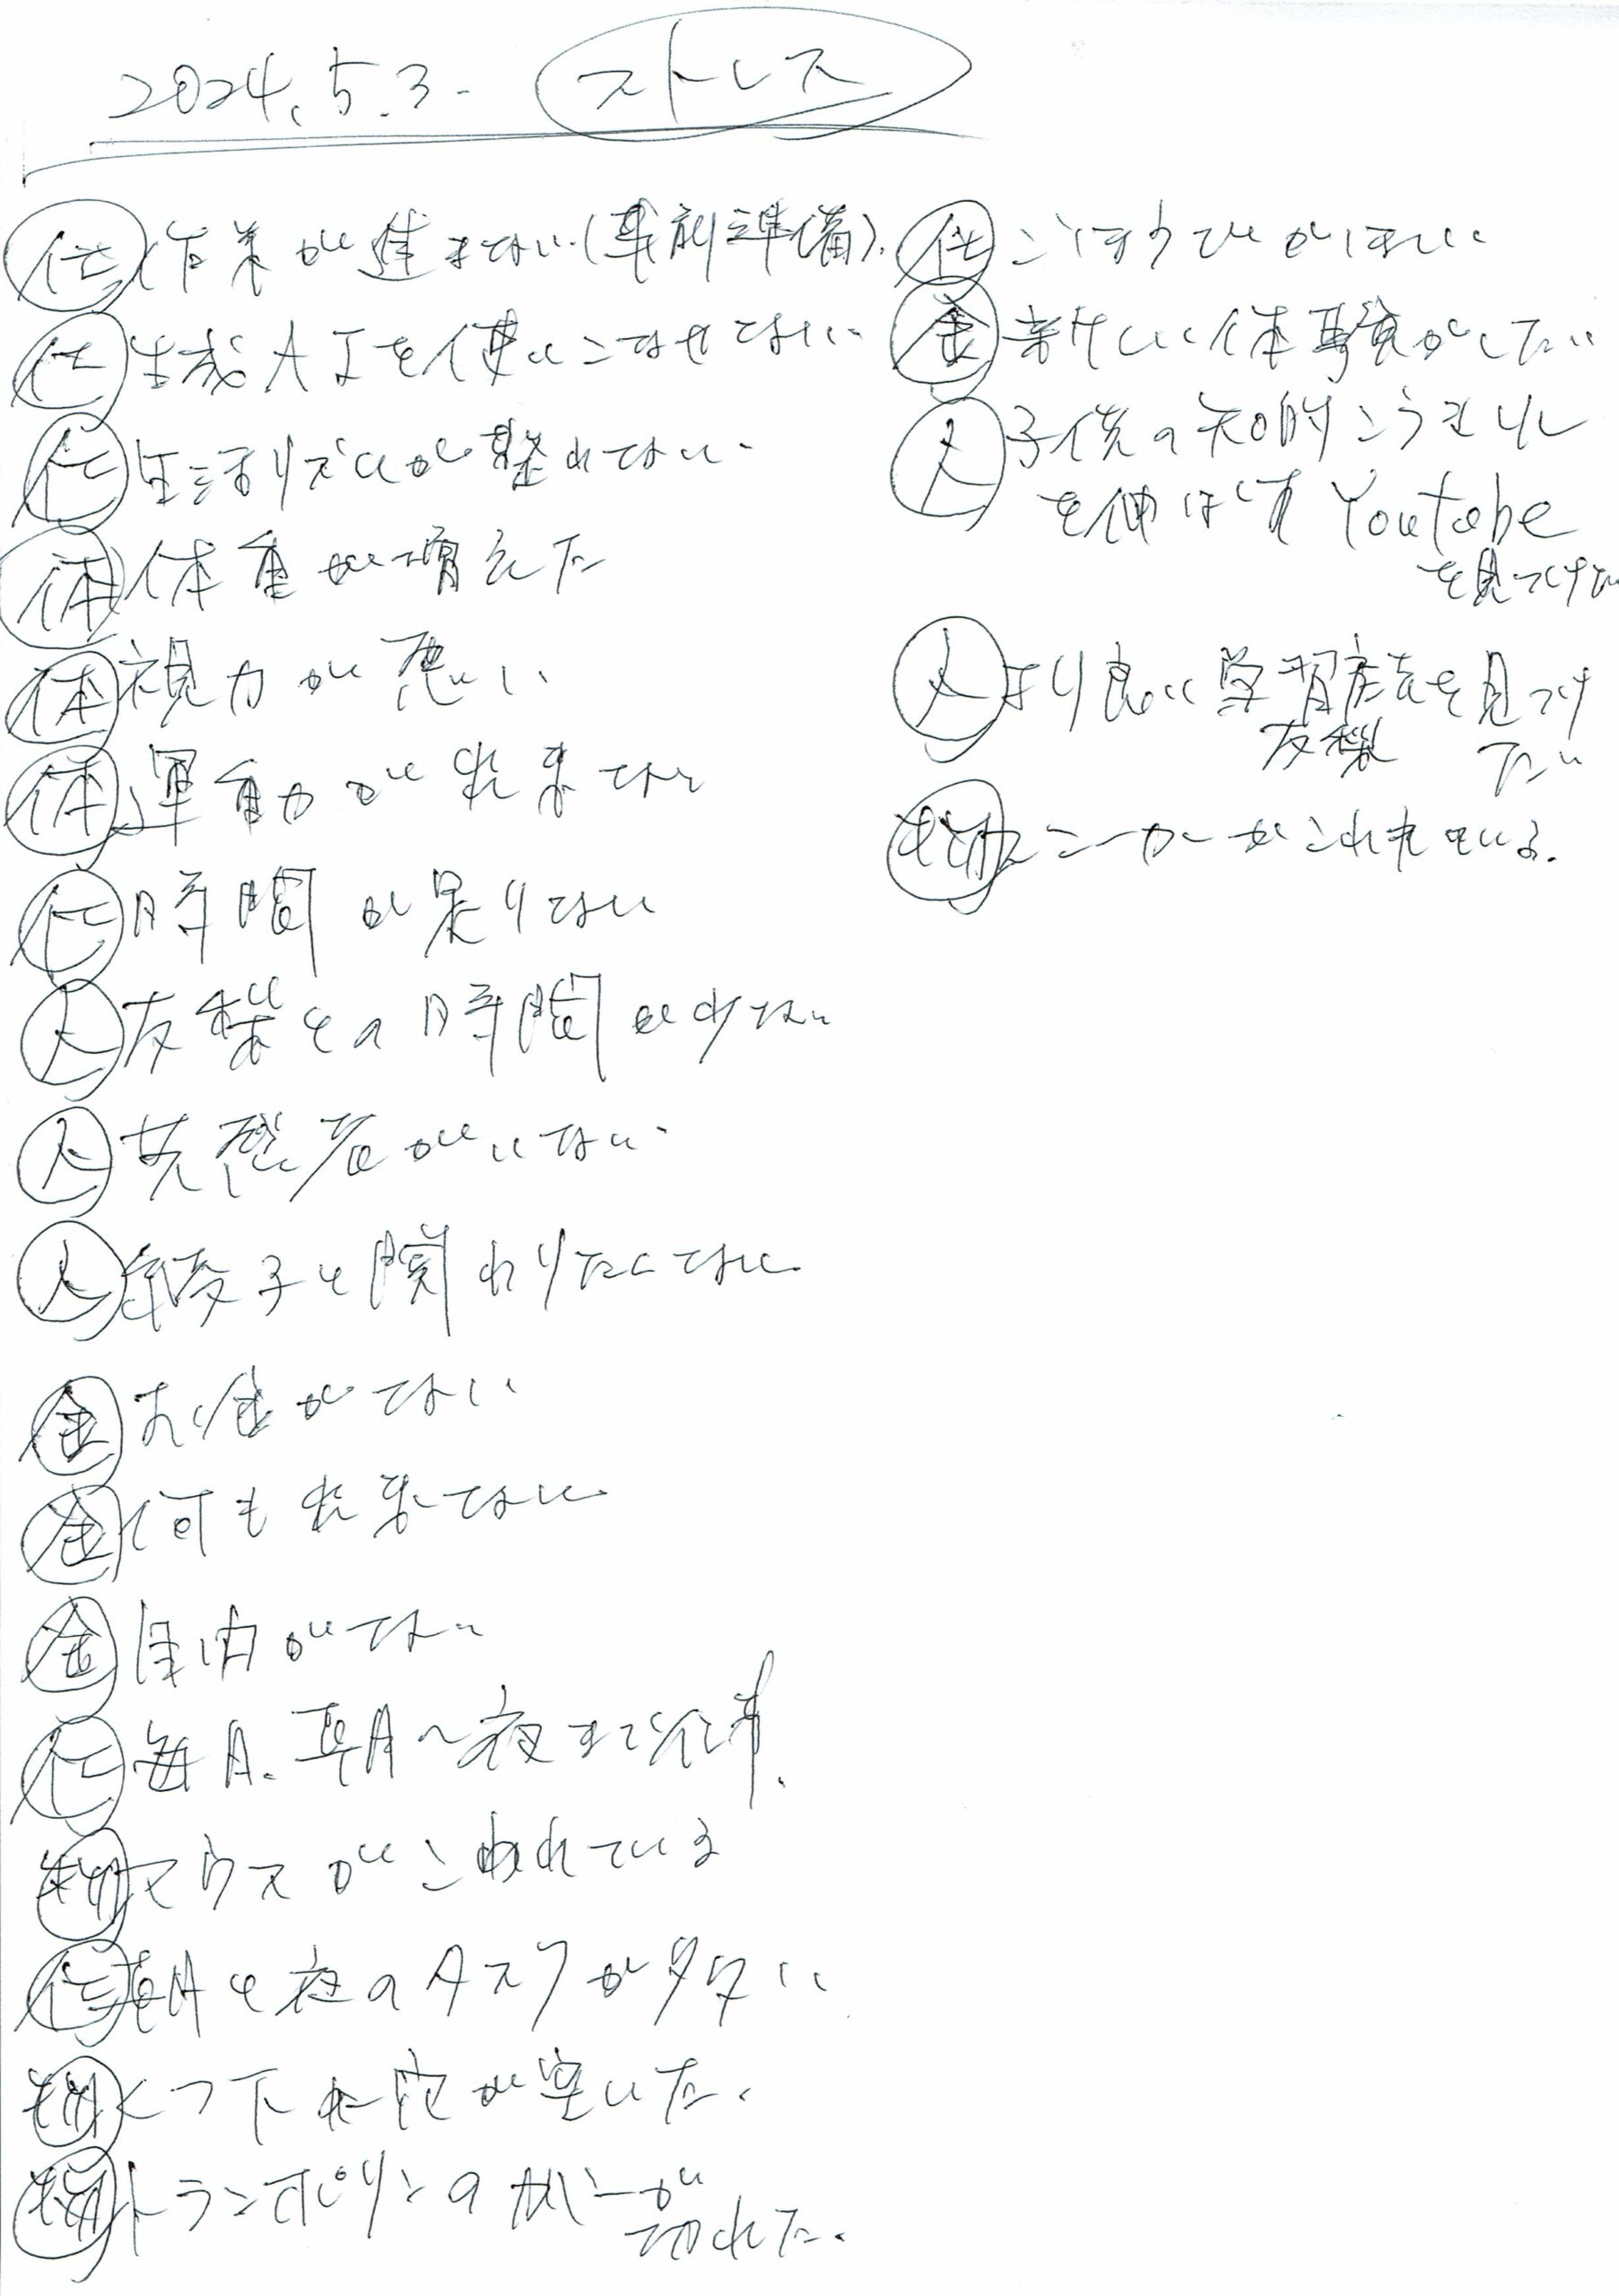 2024.5.3. ストレス
仕 作業が進まない(事前準備).
仕 生成AIを使いこなせてない
仕 生活リズムが整れてない
体 体重が増えた
体 視力が悪い
体 運動が出来ない
仕 時間が足りない
人 友梨との時間が少ない
人 共感者がいない
人 綾子と関わりたくない
金 お金がない
金 何も出来ない
金 案内がない
仕 毎日、朝〜夜まで仕事.
物 マウスがこわれている
仕 朝と夜のタスクが多い
物 くつ下に穴が空いた.
物 トランポリンのカバーが
切れた.
仕 ごほうびがほしい
金 新しい体験がしたい
人 子供の知的こうきしん
を伸ばす Youtube
を見つけたい
人 より良い学習方法を見つけ
友梨 たい
物 スニーカーがこわれている.